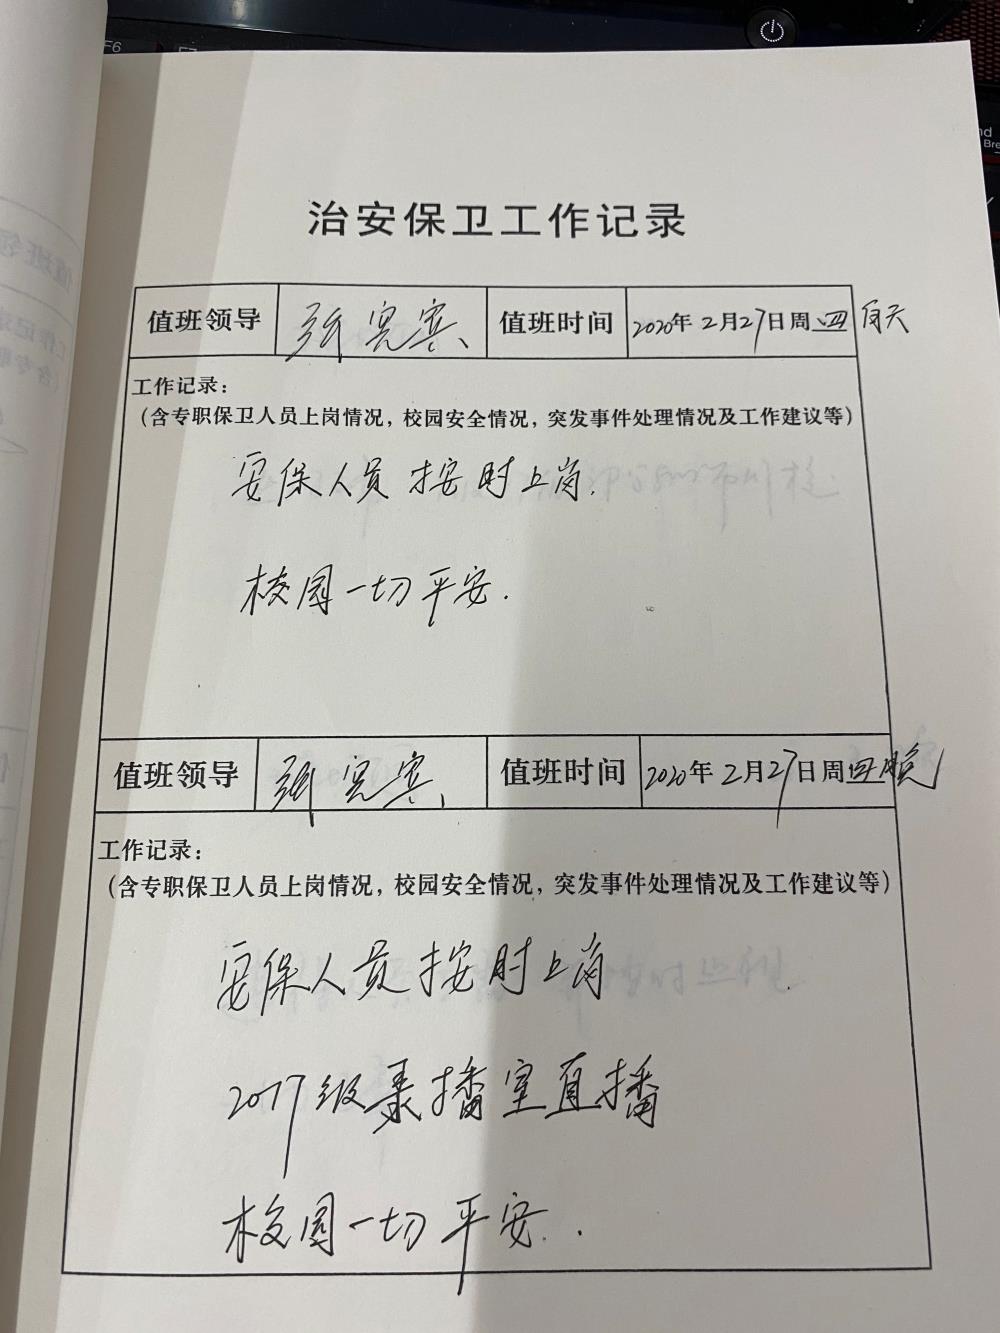 治安保卫工作记录
值班领导 张宪宾 值班时间 2020年2月27日周四 白天
工作记录:
(含专职保卫人员上岗情况，校园安全情况，突发事件处理情况及工作建议等)
安保人员按时上岗.
校园一切平安.
值班领导 张宪宾 值班时间 2020年2月27日周四晚
工作记录:
(含专职保卫人员上岗情况，校园安全情况，突发事件处理情况及工作建议等)
安保人员按时上岗
2017级录播室直播
校园一切平安.